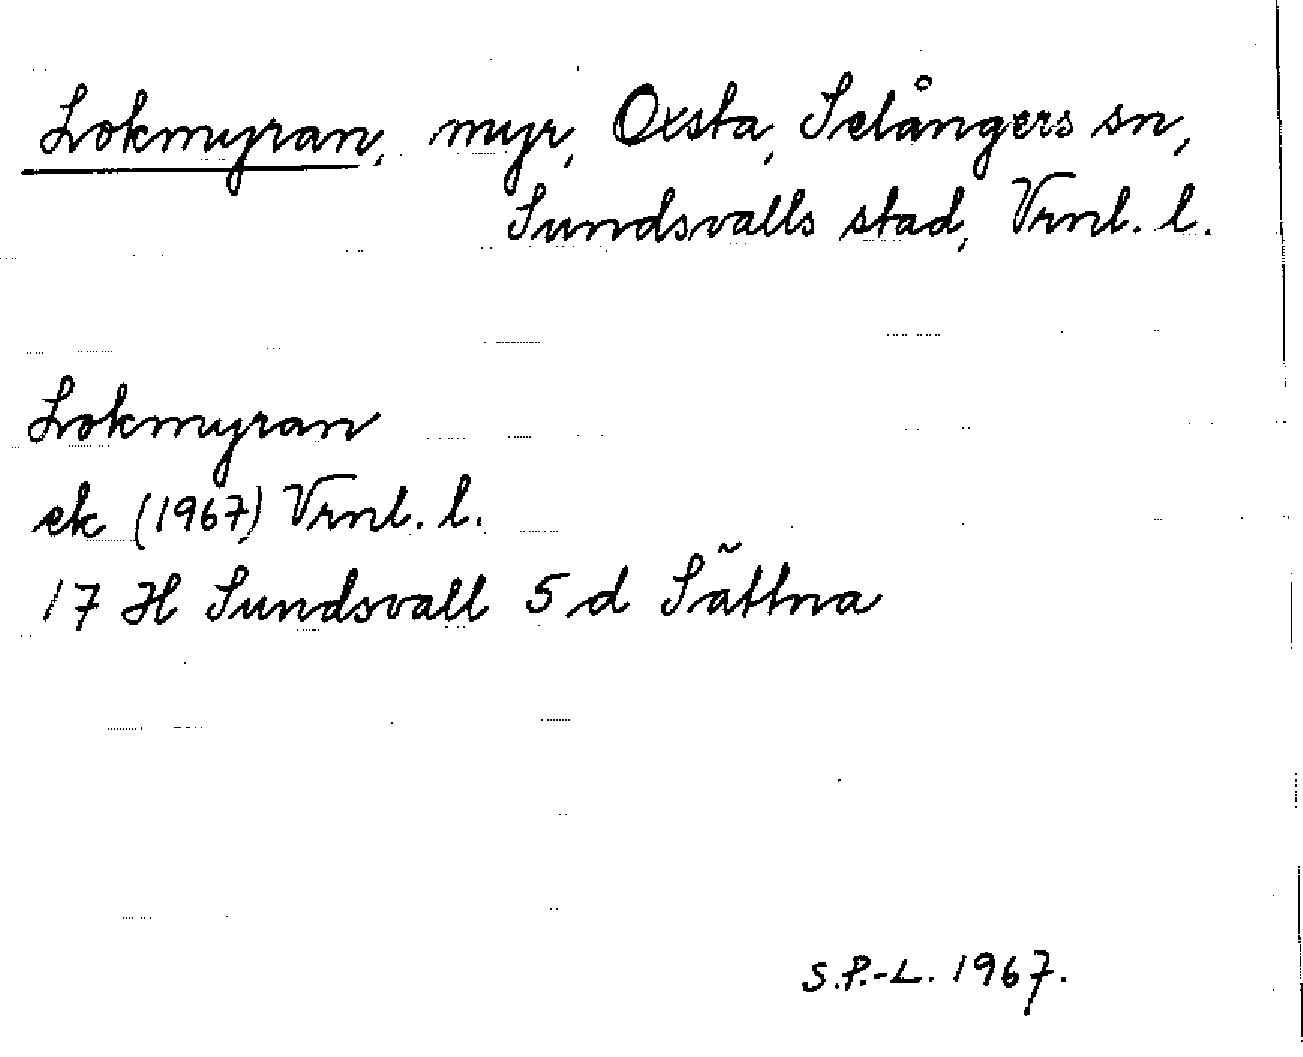 Lokmyran, myr, Oxsta, Selångers sn,
Sundsvalls stad, Vrnl. l.
Lokmyran
ek (1967) Vrnl. l.
17 H Sundsvall 5 d Sättna
S.P.-L. 1967.